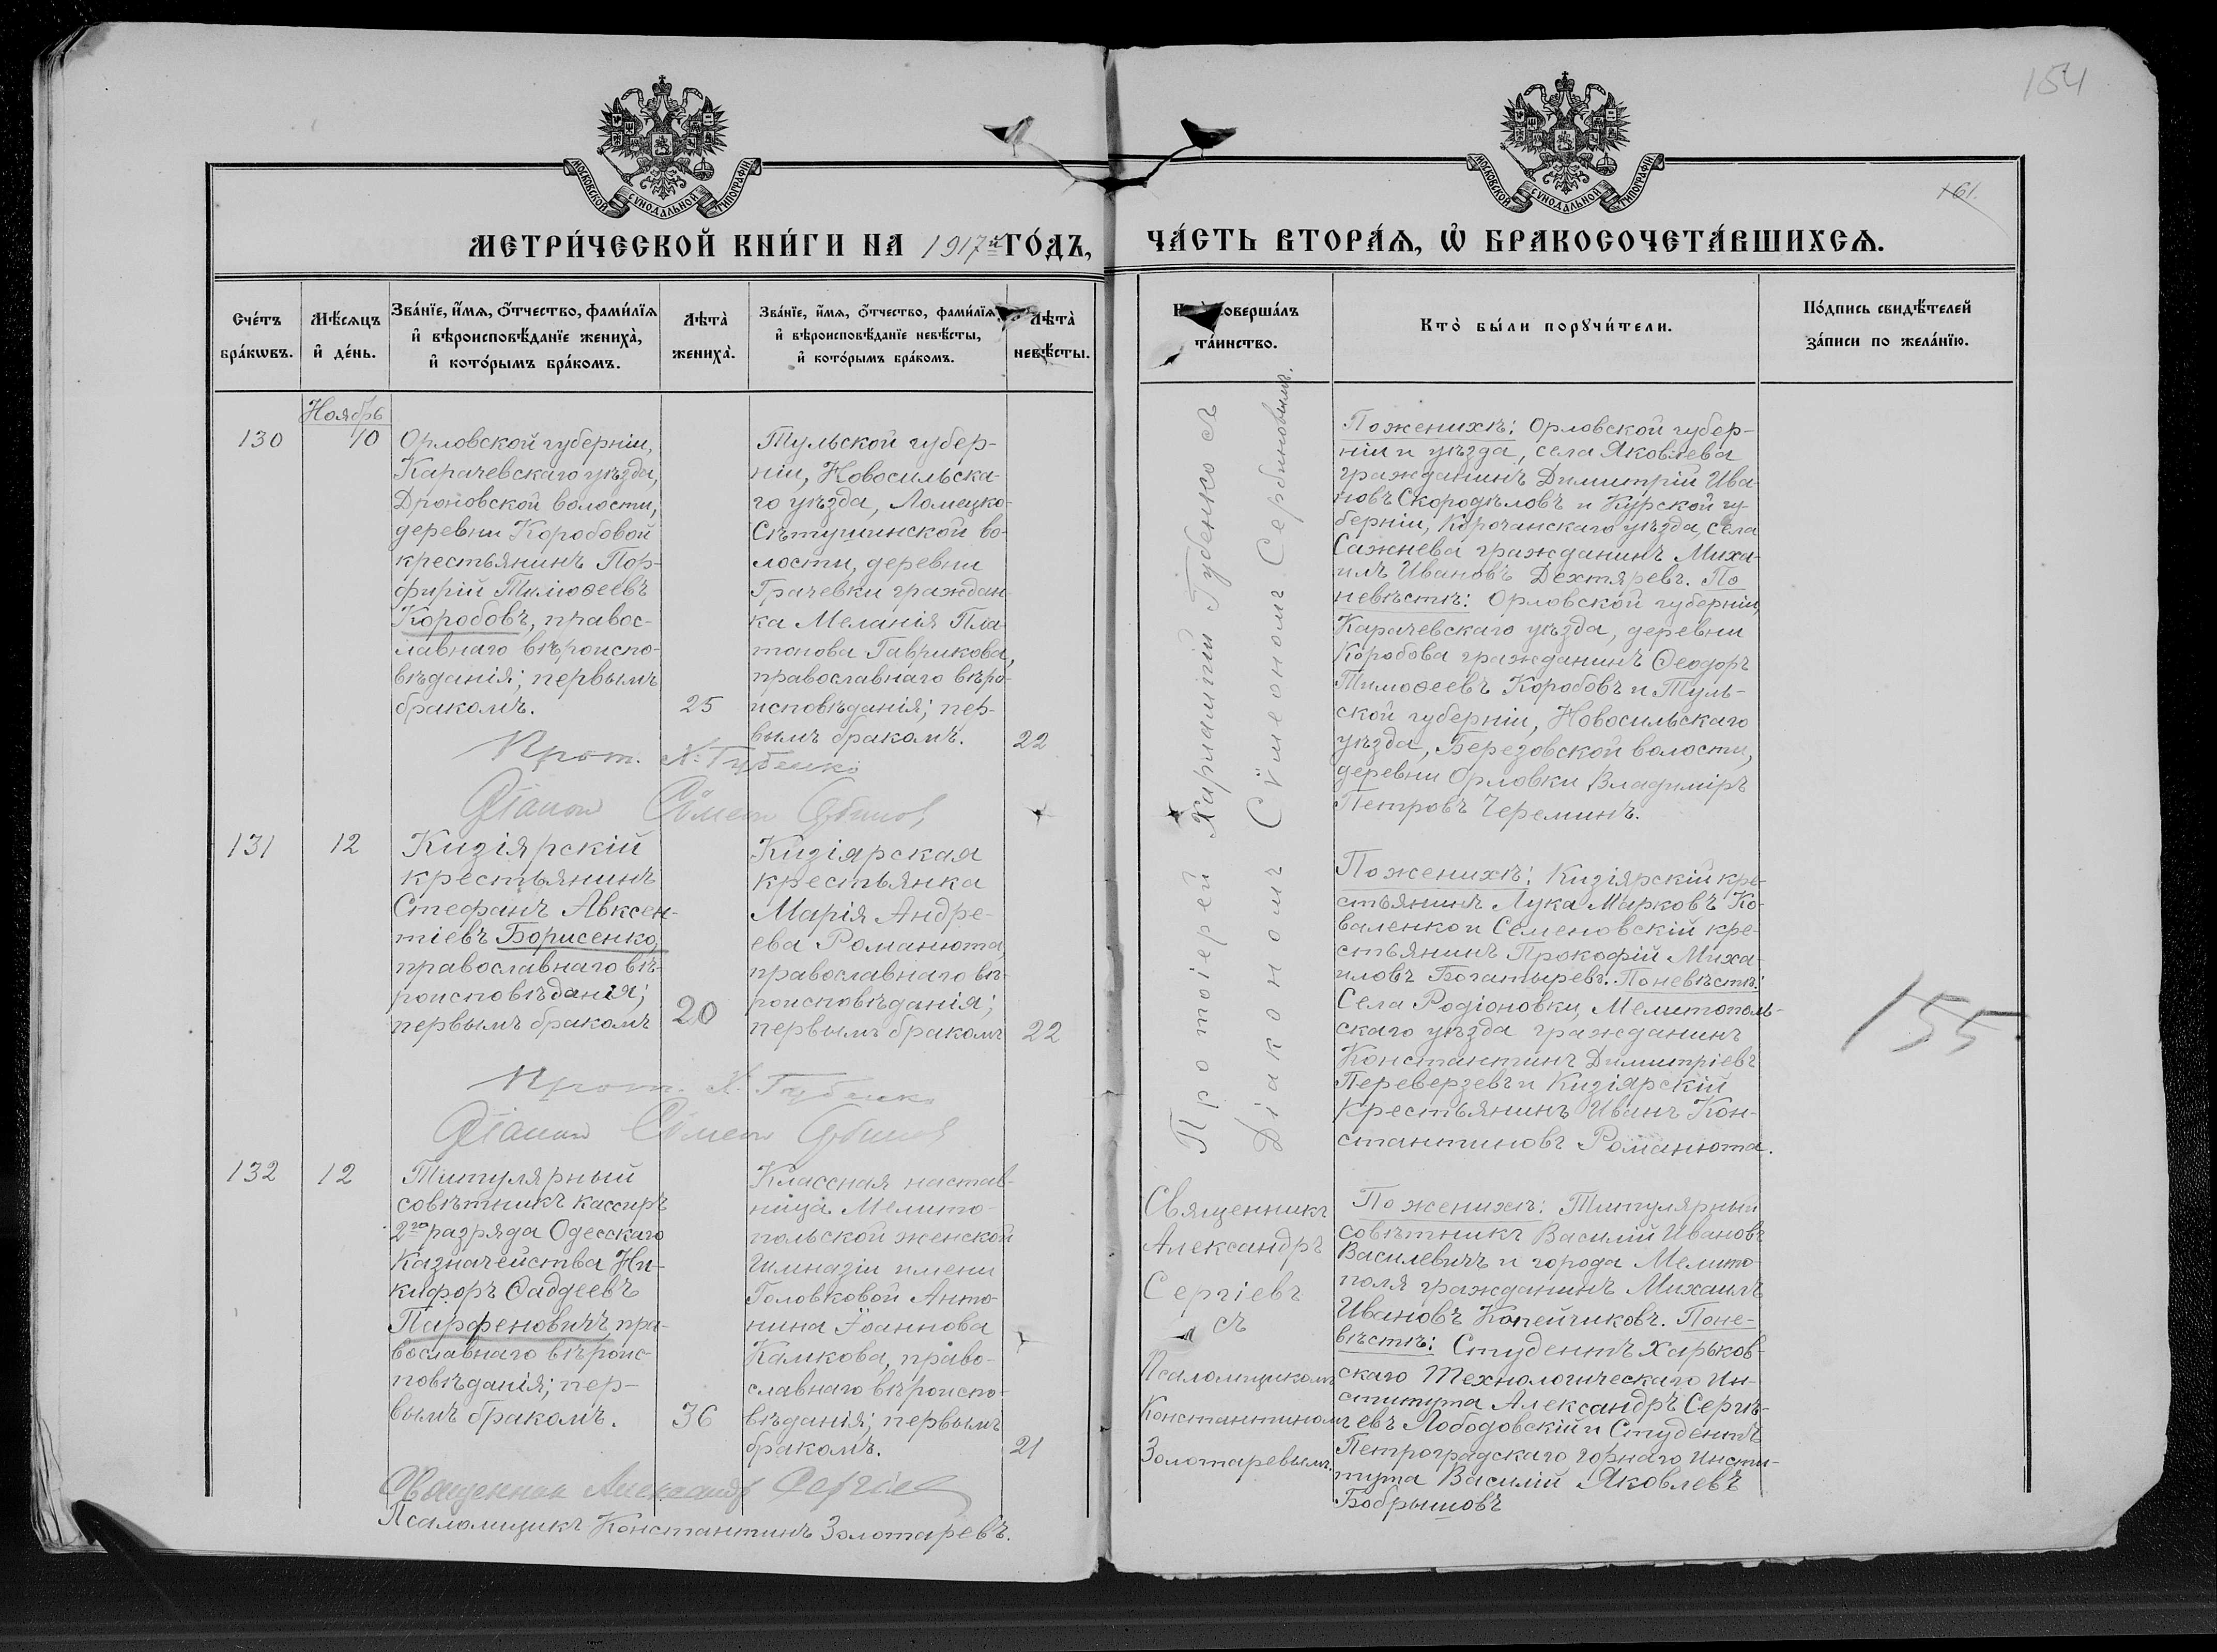 154
161.
МОСКОВСКОЙ СѴНОДАЛЬНОЙ ТИПОГРАФІИ
МОСКОВСКОЙ СѴНОДАЛЬНОЙ ТИПОГРАФІИ
МЕТРИ́ЧЕСКОЙ КНИ́ГИ НА 1917й ГО́ДЪ,
ЧА́СТЬ ВТОРА́Ѧ, Ѡ҆ БРАКОСОЧЕТА́ВШИХСѦ.
Сче́тъ
бра́кѡвъ.
Мѣ́сѧцъ
и҆ де́нь.
Зва́нїе, и҆́мѧ, ѻ҆́тчество, фами́лїѧ
и҆ вѣроисповѣ́данїе жениха̀,
и҆ кото́рымъ бра́комъ.
Лѣ́та̀
жениха̀.
Зва́нїе, и҆́мѧ, ѻ҆́тчество, фами́лїѧ
и҆ вѣроисповѣ́данїе невѣ́сты,
и҆ кото́рымъ бра́комъ.
Лѣ́та̀
невѣ́сты.
соверша́лъ
та́инство.
Кто̀ бы́ли порꙋчи́тели.
По́дпись свидѣ́телей
за́писи по жела́нїю.
Ноябрь
130
10
Орловской губерніи,
Карачевскаго уѣзда,
Дроновской волости,
деревни Коробовой
крестьянинъ Пор-
фирій Тимоѳеевъ
Коробовъ, правос-
лавнаго вѣроиспо-
вѣданія; первымъ
бракомъ.
25
Тульской губер-
ніи, Новосильска-
го уѣзда, Ломецко-
Сѣтушинской во-
лости, деревни
Грачевки граждан-
ка Меланія Пла-
тонова Гаврикова,
православнаго вѣро-
исповѣданія; пер-
вымъ бракомъ.
22
Прот. Х. Губенко
Діаконъ Сѵмеонъ Сербиновъ
Протоіерей Харлампій Губенко съ
Діакономъ Сѵмеономъ Сербиновымъ.
По женихѣ: Орловской губер-
ніи и уѣзда, села Яковлева
гражданинъ Димитрій Ива-
новъ Скородѣловъ и Курской гу-
берніи, Корочанскаго уѣзда, села
Сажнева гражданинъ Миха-
илъ Ивановъ Дехтяревъ. По
невѣстѣ: Орловской губерніи,
Карачевскаго уѣзда, деревни
Коробова гражданинъ Ѳеодоръ
Тимоѳеевъ Коробовъ и Туль-
ской губерніи, Новосильскаго
уѣзда, Березовской волости,
деревни Орловки Владиміръ
Петровъ Череминъ.
131
12
Кизіярскій
крестьянинъ
Стефанъ Авксен-
тіевъ Борисенко,
православнаго вѣ-
роисповѣданія;
первымъ бракомъ
20
Кизіярская
крестьянка
Марія Андре-
ева Романюта,
православнаго вѣ-
роисповѣданія;
первымъ бракомъ
22
Прот. Х. Губенко
Діаконъ Сѵмеонъ Сербиновъ
По женихѣ: Кизіярскій кре-
стьянинъ Лука Марковъ Ко-
валенко и Семеновскій кре-
стьянинъ Прокофій Миха-
иловъ Богатыревъ. По невѣстѣ:
Села Родіоновки, Мелитополь-
скаго уѣзда гражданинъ
Константинъ Димитріевъ
Переверзевъ и Кизіярскій
крестьянинъ Иванъ Кон-
стантиновъ Романюта.
155
132
12
Титулярный
совѣтникъ кассиръ
2го разряда Одесскаго
Казначейства Ни-
кифоръ Ѳаддеевъ
Парфеновичъ, пра-
вославнаго вѣроис-
повѣданія; пер-
вымъ бракомъ.
36
Классная настав-
ница Мелито-
польской женской
Гимназіи имени
Головковой Анто-
нина Іоаннова
Камкова, право-
славнаго вѣроиспо-
вѣданія; первымъ
бракомъ.
21
Священникъ Александръ Сергіевъ
Псаломщикъ Константинъ Золотаревъ.
Священникъ
Александръ
Сергіевъ
съ
Псаломщикомъ
Константиномъ
Золотаревымъ.
По женихѣ: Титулярный
совѣтникъ Василій Ивановъ
Василевичъ и города Мелито-
поля гражданинъ Михаилъ
Ивановъ Копейчиковъ. По не-
вѣстѣ: Студентъ Харьков-
скаго Технологическаго Ин-
ститута Александръ Сергѣ-
евъ Лободовскій и Студентъ
Петроградскаго Горнаго Инсти-
тута Василій Яковлевъ
Бобрышовъ